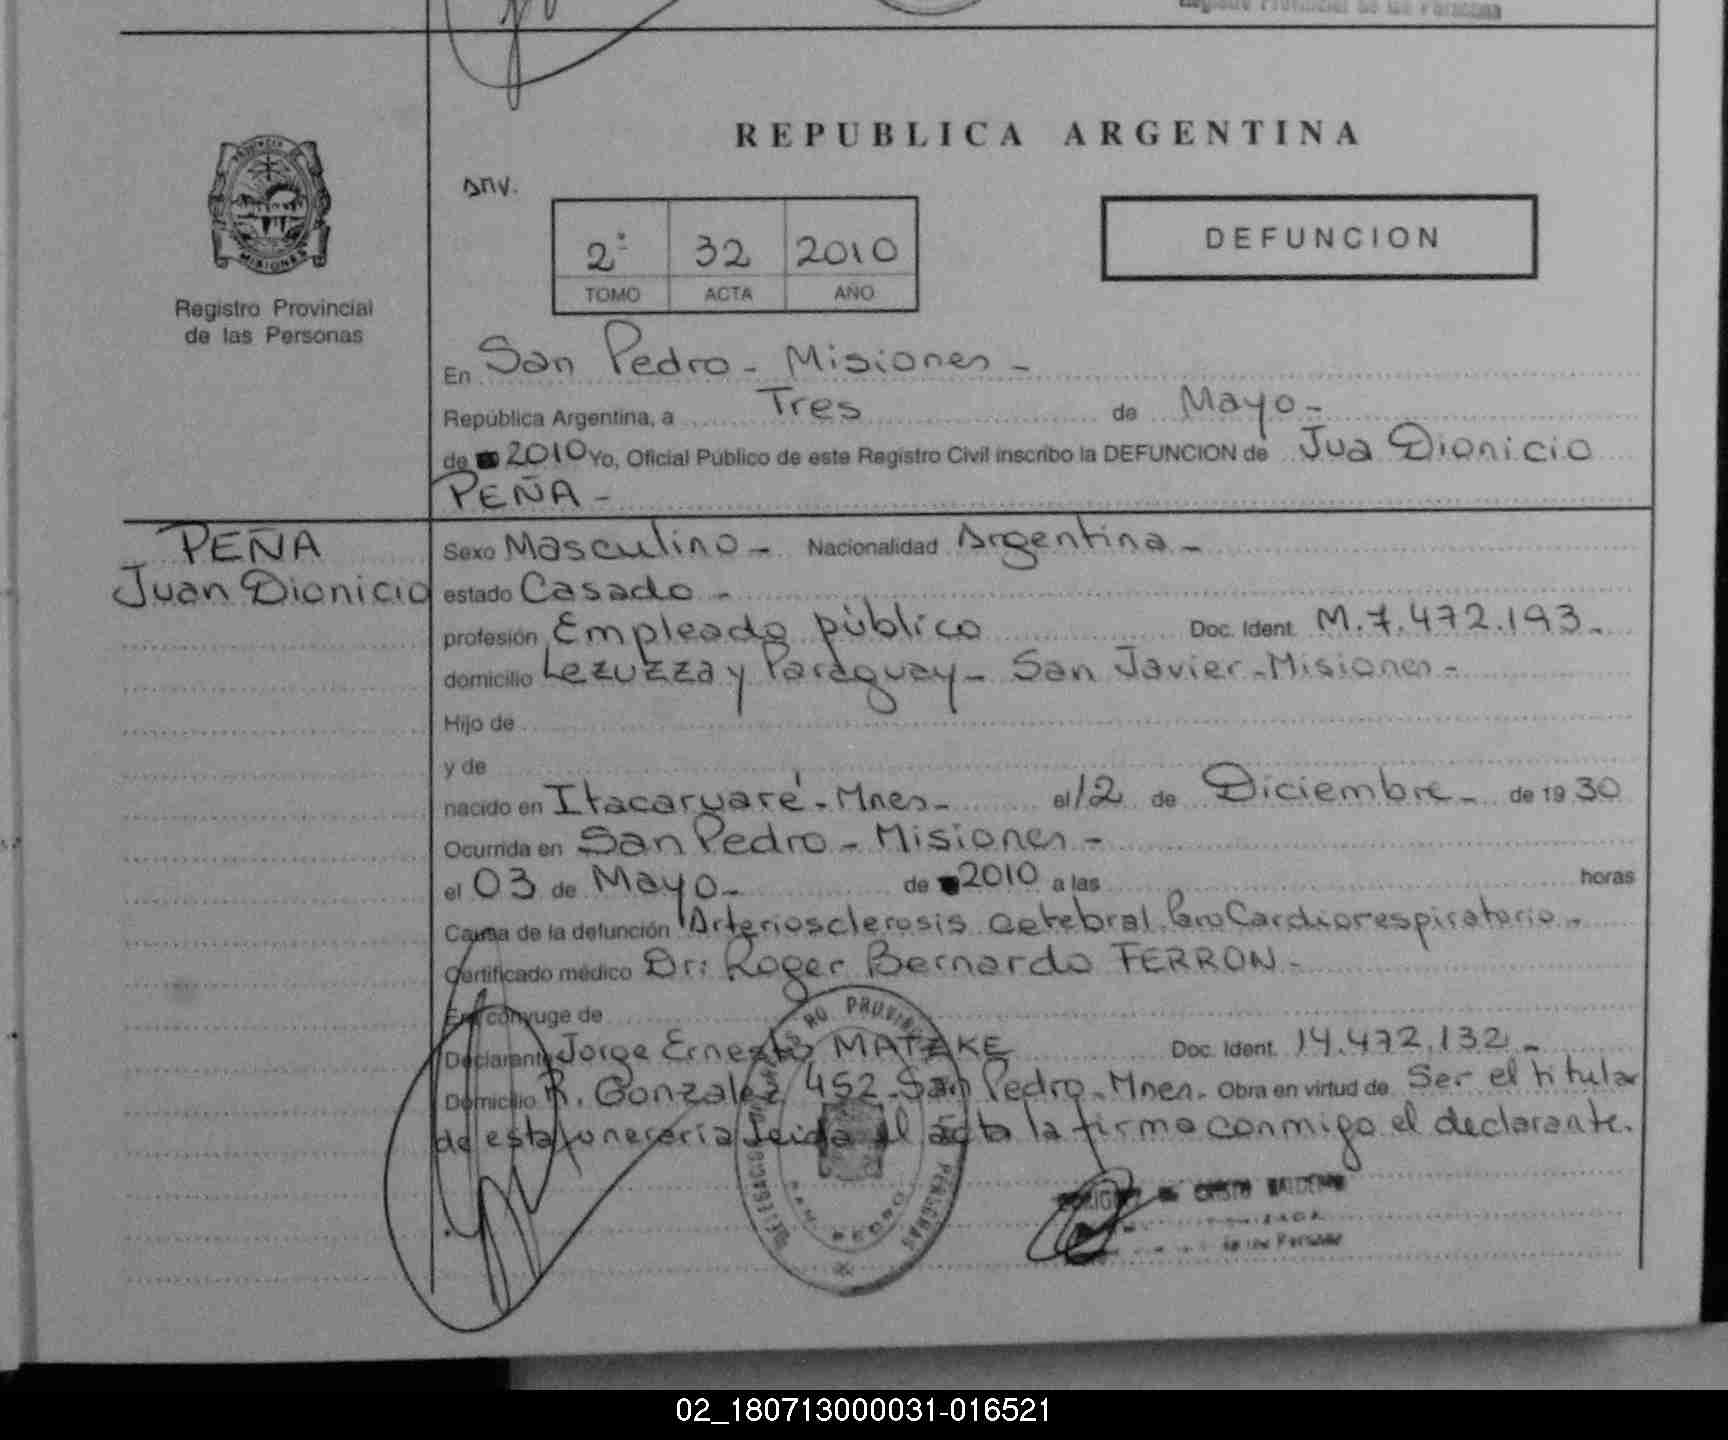 Registro Provincial de las Personas
REPUBLICA ARGENTINA
PROVINCIA DE
MISIONES
Registro Provincial
de las Personas
2º 32 2010
TOMO ACTA AÑO
DEFUNCION
En San Pedro - Misiones -
República Argentina, a Tres de Mayo -
de 2010 Yo, Oficial Público de este Registro Civil inscribo la DEFUNCION de Jua Dionicio
PEÑA -
PEÑA
Juan Dionicio
Sexo Masculino - Nacionalidad Argentina -
estado Casado -
profesión Empleado público Doc. Ident. M.7.472.193.-
domicilio Lezuzza y Paraguay - San Javier - Misiones -
Hijo de
y de
nacido en Itacaruaré - Mnes - el 12 de Diciembre - de 19 30
Ocurrida en San Pedro - Misiones -
el 03 de Mayo - de 2010 a las horas
Causa de la defunción Arteriosclerosis cerebral. Paro Cardiorespiratorio -
Certificado médico Dr: Roger Bernardo FERRON -
Era cónyuge de
Declarante Jorge Ernesto MATZKE Doc. Ident. 14.472.132 -
Domicilio R. Gonzalez 452 - San Pedro - Mnes. Obra en virtud de Ser el titular
de esta funeraria Leida el acta la firma conmigo el declarante.
de las Personas
02_180713000031-016521